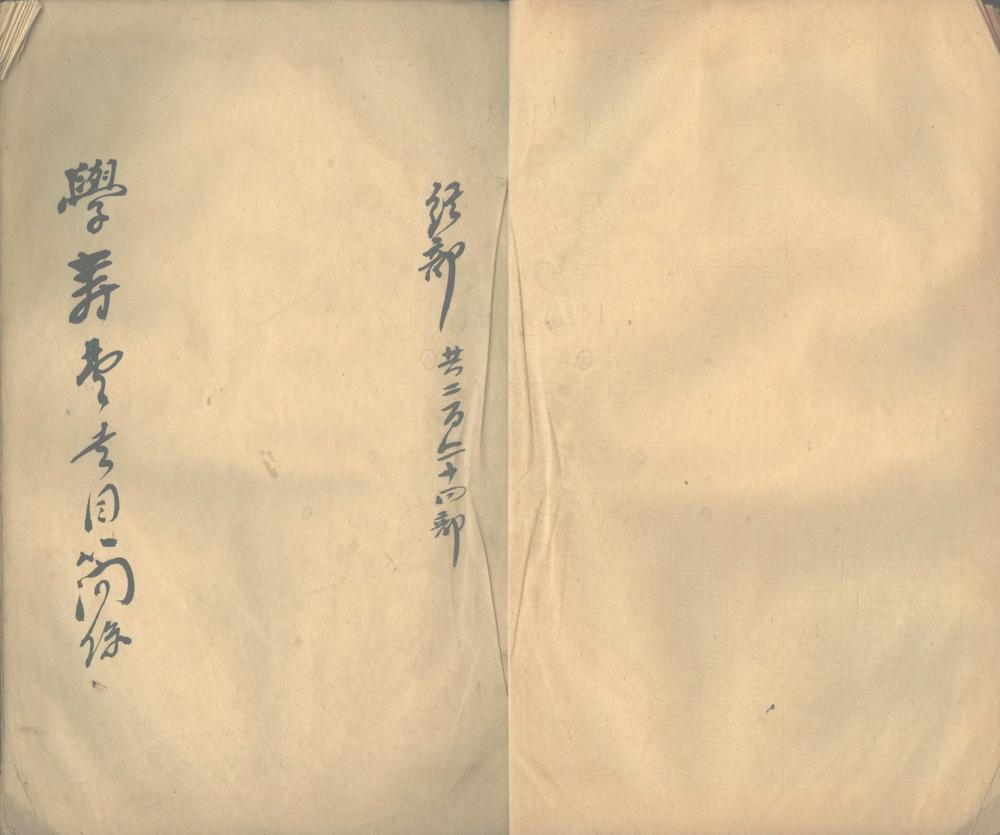 經部 共二百十四部
學壽堂書目簡